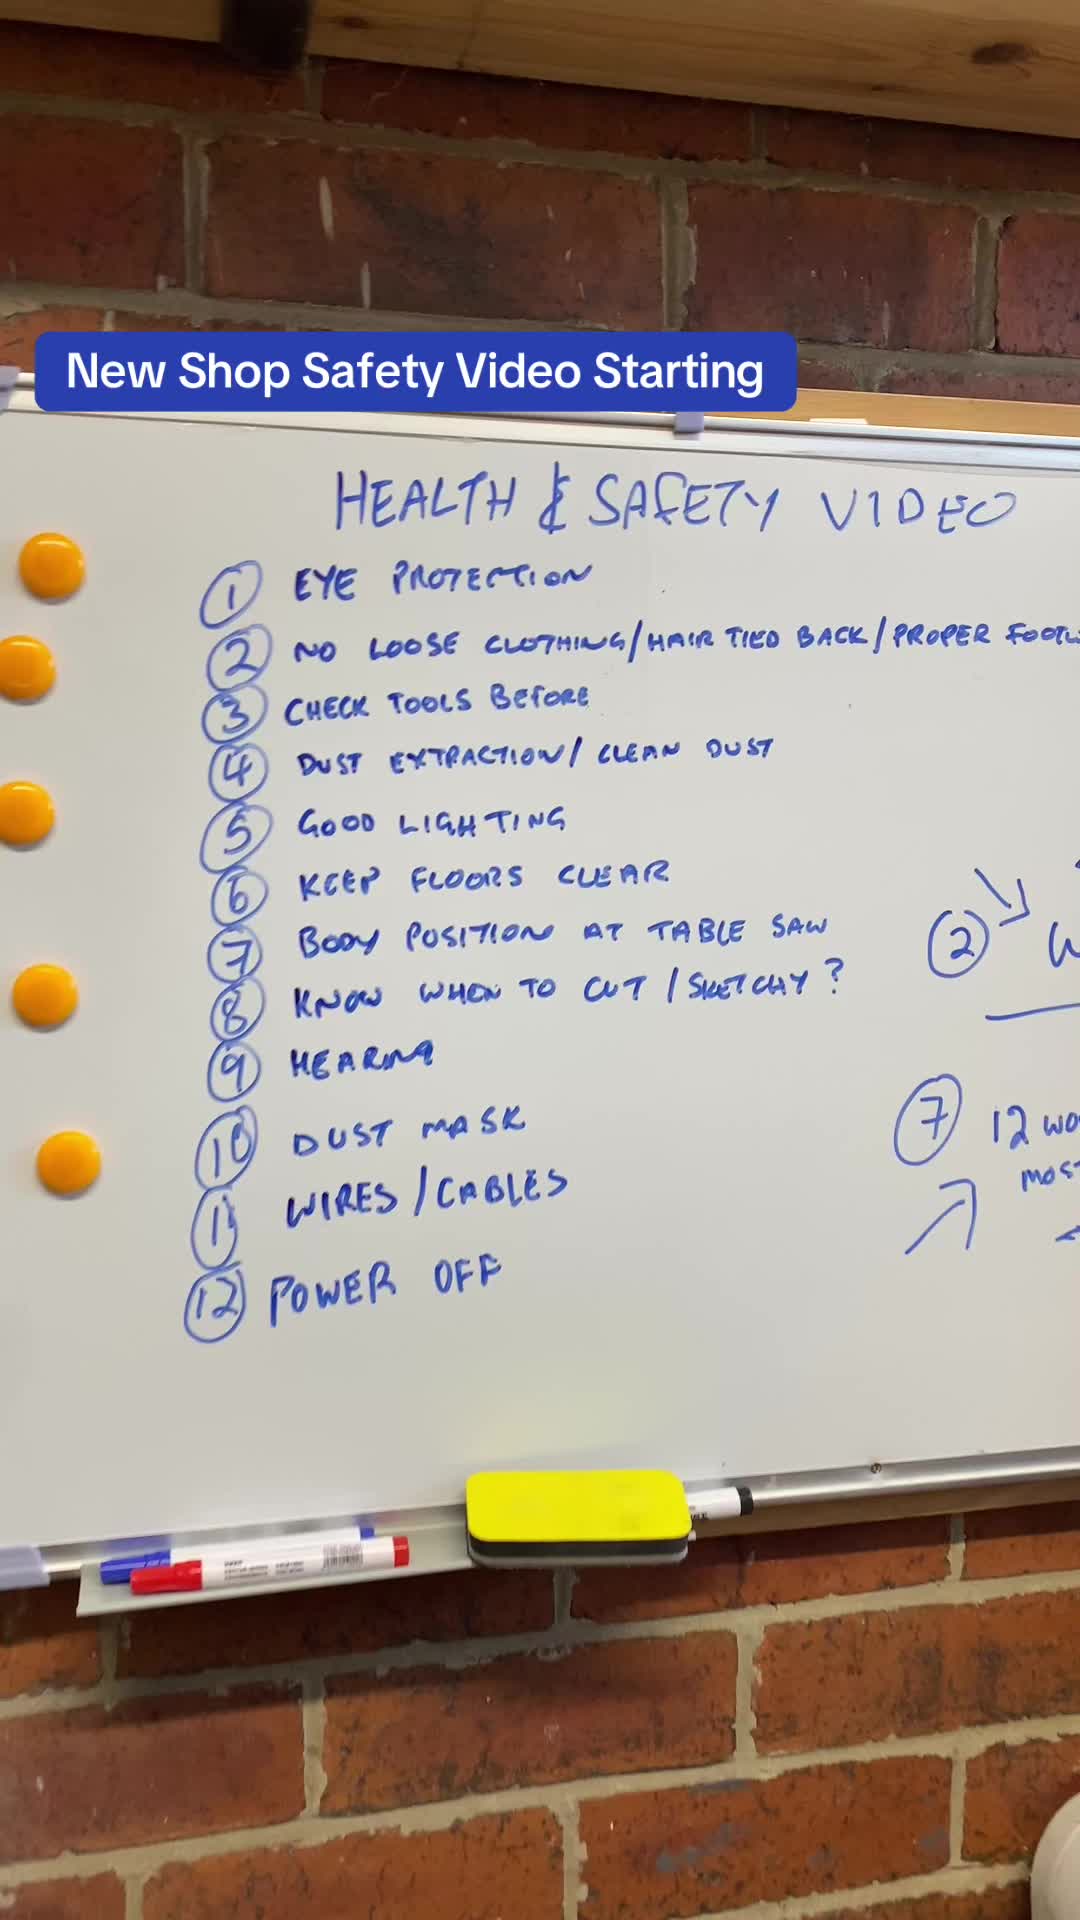 New Shop Safety Video Starting
HEALTH & SAFETY VIDEO
1 EYE PROTECTION
2 NO LOOSE CLOTHING/HAIR TIED BACK/PROPER
3 CHECK TOOLS BEFORE
4 DUST EXTRACTION/ CLEAN DUST
5 GOOD LIGHTING
6 KEEP FLOORS CLEAR
7 BODY POSITION AT TABLE SAW
8 KNOW WHEN TO CUT / SKETCHY?
9 HEARING
10 DUST MASK
11 WIRES/CABLES
12 POWER OFF
2
7 12